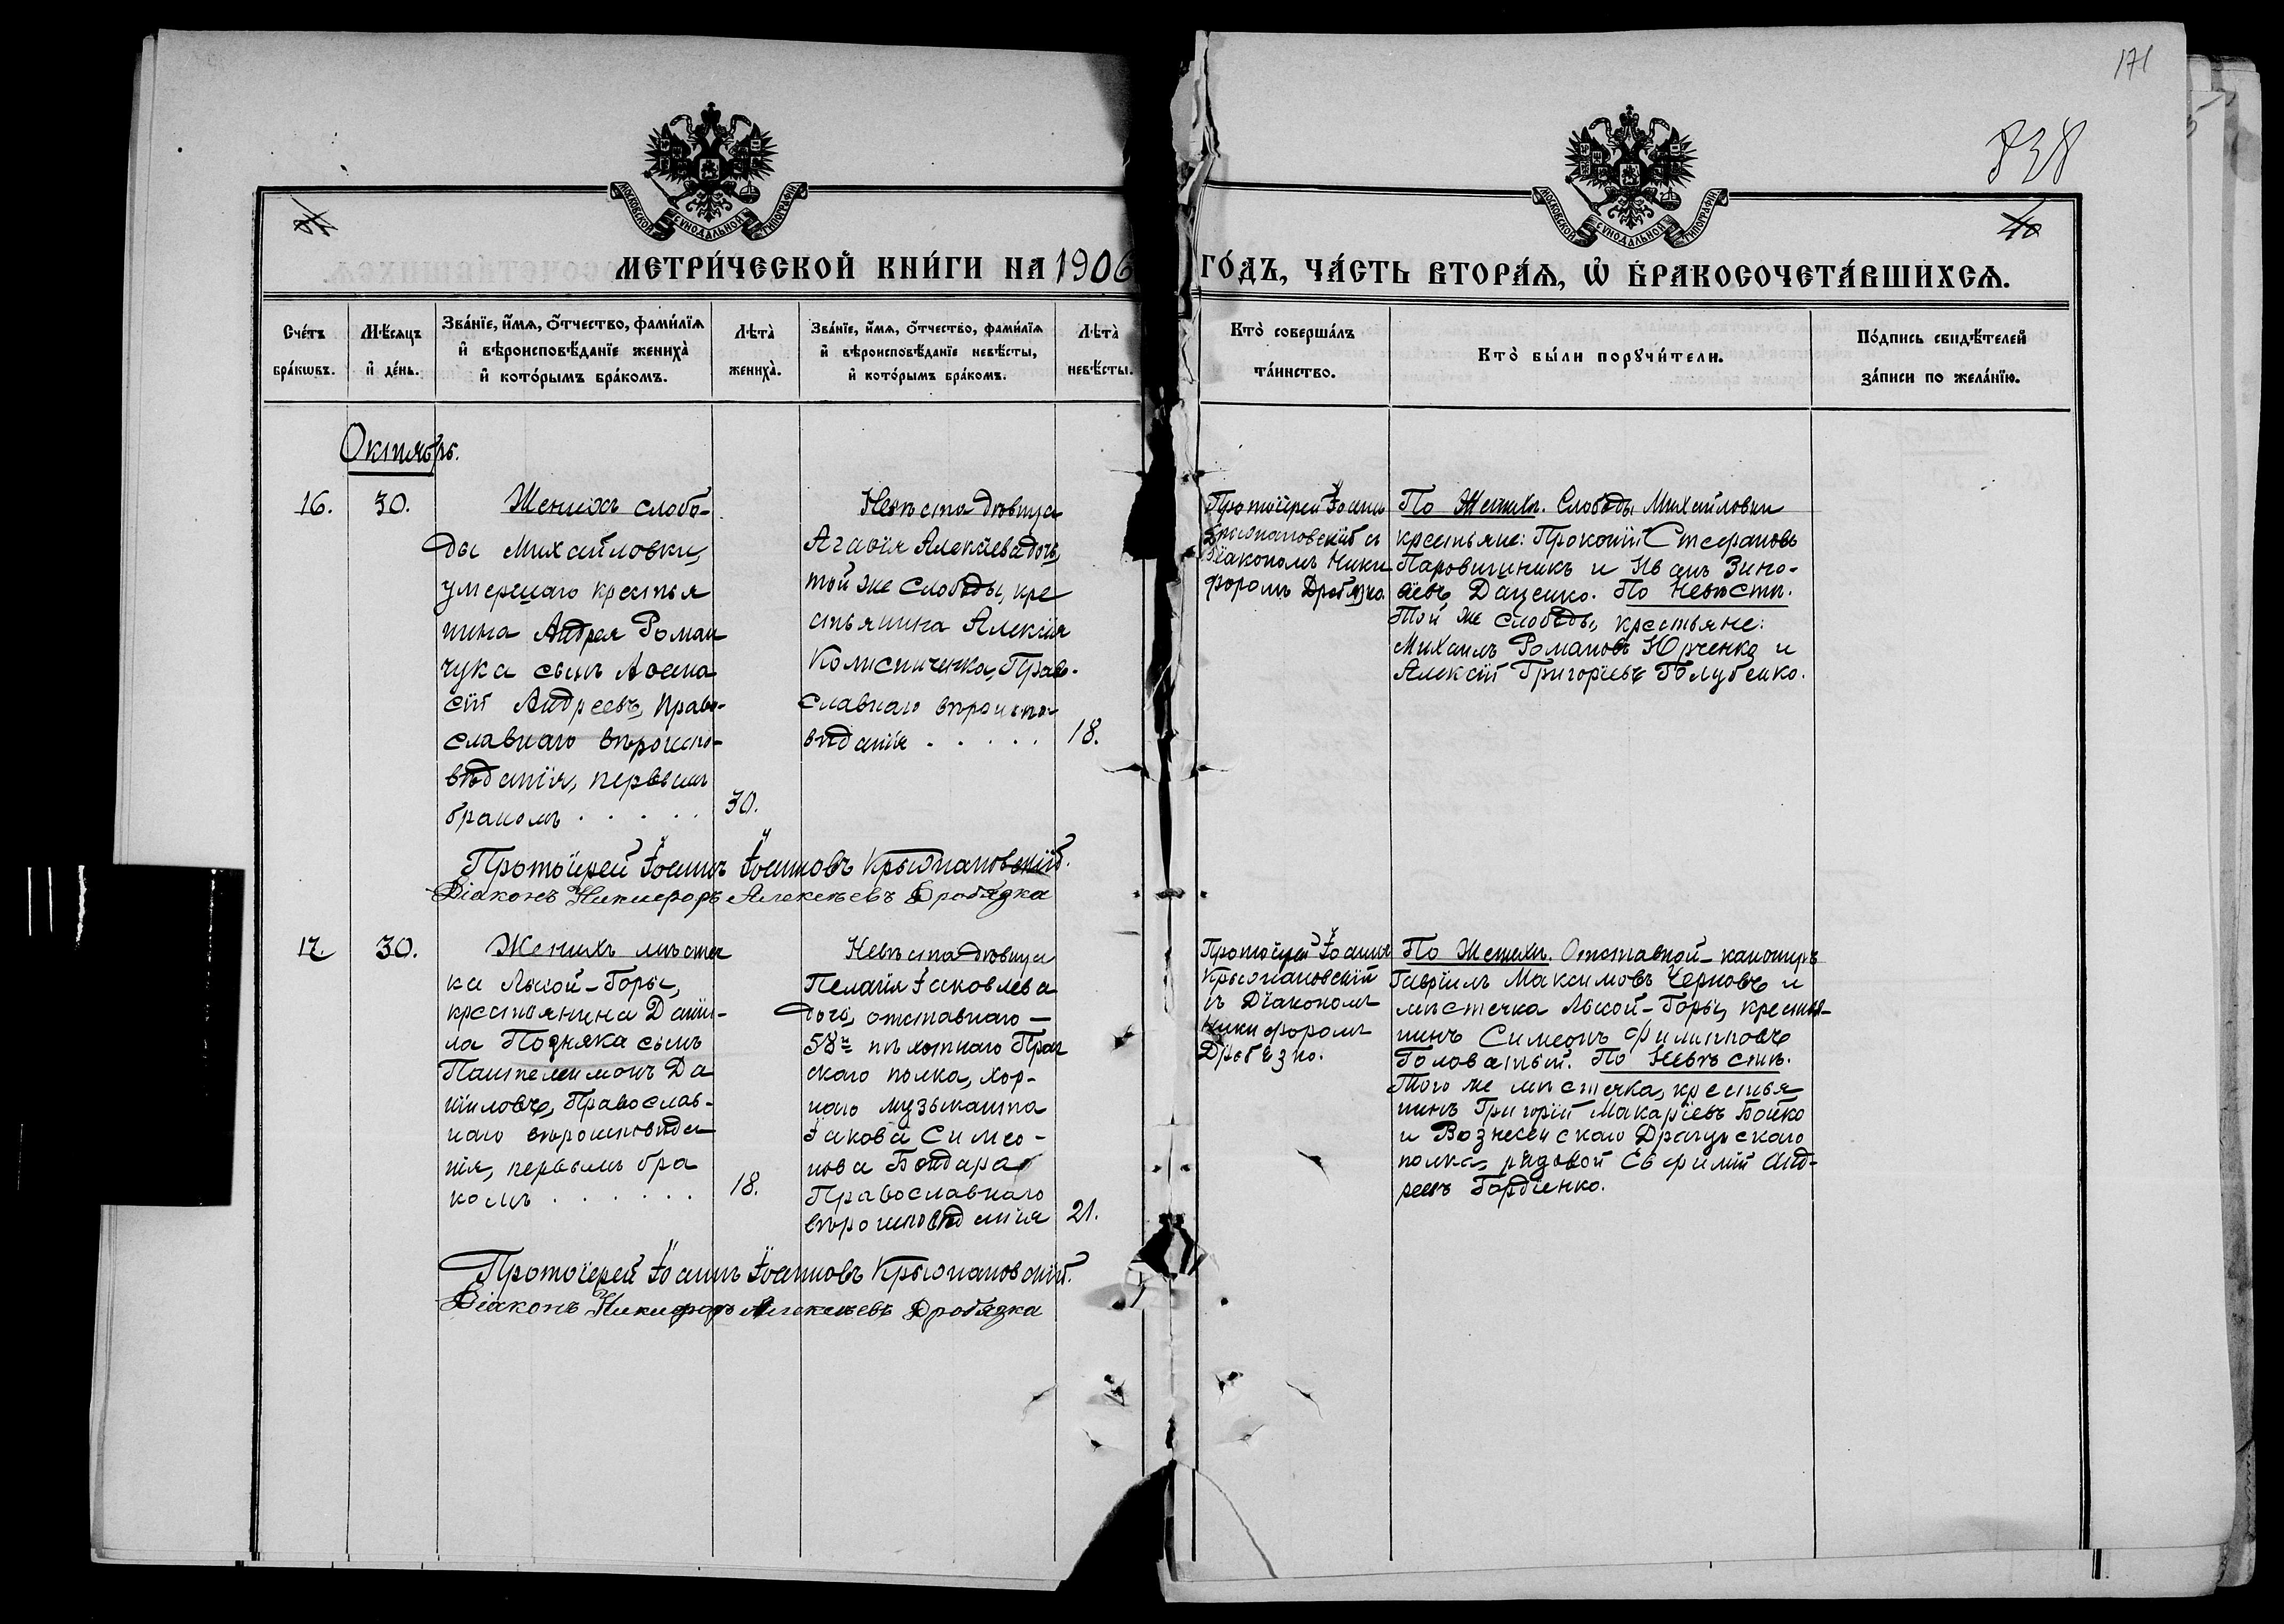 171
838
40
МОСКОВСКОЙ СѴНОДАЛЬНОЙ ТИПОГРАФІИ
МОСКОВСКОЙ СѴНОДАЛЬНОЙ ТИПОГРАФІИ
МЕТРИ́ЧЕСКОЙ КНИ́ГИ НА 1906
ГО́ДЪ, ЧА́СТЬ ВТОРА́Ѧ, Ѡ҆ БРАКОСОЧЕТА́ВШИХСѦ.
Сче́тъ бра́кѡвъ.
Мѣ́сѧцъ и҆ де́нь.
Зва́нїе, и҆́мѧ, ѻ҆́тчество, фами́лїѧ
и҆ вѣроисповѣ́данїе жениха̀
и҆ кото́рымъ бра́комъ.
Лѣта̀ жениха̀.
Зва́нїе, и҆́мѧ, ѻ҆́тчество, фами́лїѧ
и҆ вѣроисповѣ́данїе невѣ́сты,
и҆ кото́рымъ бра́комъ.
Лѣта̀ невѣ́сты.
Кто̀ соверша́лъ
та́инство.
Кто̀ бы́ли порꙋчи́тели.
По́дпись свидѣ́телей
за́писи по жела́нїю.
Октябрь.
16.
30.
Женихъ слобо-
ды Михайловки,
умершаго крестья
нина Андрея Роман
чука сынъ Аѳана
сій Андреевъ, право-
славнаго вѣроиспо-
вѣданія, первымъ
бракомъ . . . . .
30.
Невѣста дѣвица
Агаѳія Алексіева дочь,
той же Слободы, кре
стьянина Алексія
Колисниченка, Право-
славнаго вѣроиспо-
вѣданія . . . . .
18.
Протоіерей Іоаннъ
Крыжановскій съ
Діакономъ Ники
форомъ Дробязко.
По Женихѣ. Слободы Михайловки
крестьяне: Прокопій Стефановъ
Паровишникъ и Иванъ Зино-
віевъ Даценко. По Невѣстѣ.
Той же слободы, крестьяне:
Михаилъ Романовъ Юрченко и
Алексій Григоріевъ Голубенко.
Протоіерей Іоаннъ Іоанновъ Крыжановскій.
Діаконъ Никифоръ Алексѣевъ Дробязка
17.
30.
Женихъ мѣстеч
ка Лысой-Горы,
крестьянина Дані-
ла Позняка сынъ
Пантелеимонъ Да
ніиловъ, Православ-
наго вѣроисповѣда
нія, первымъ бра
комъ . . . . . .
18.
Невѣста дѣвица
Пелагія Іаковлева
дочь, отставнаго
58го пѣхотнаго Праг
скаго полка, хор-
наго музыканта
Іакова Симео-
нова Бондара
Православнаго
вѣроисповѣданія
21.
Протоіерей Іоаннъ
Крыжановскій
съ Діакономъ
Никифоромъ
Дробязко.
По Женихѣ. Отставной канониръ
Гавріилъ Максимовъ Черновъ и
мѣстечка Лысой-Горы, крестья-
нинъ Симеонъ Филипповъ
Головатый. По Невѣстѣ.
Того же мѣстечка, крестья
нинъ Григорій Макаріевъ Бойко
и Вознесенскаго Драгунскаго
полка, рядовой Евфимій Анд-
реевъ Гордіенко.
Протоіерей Іоаннъ Іоанновъ Крыжановскій.
Діаконъ Никифоръ Алексѣевъ Дробязка